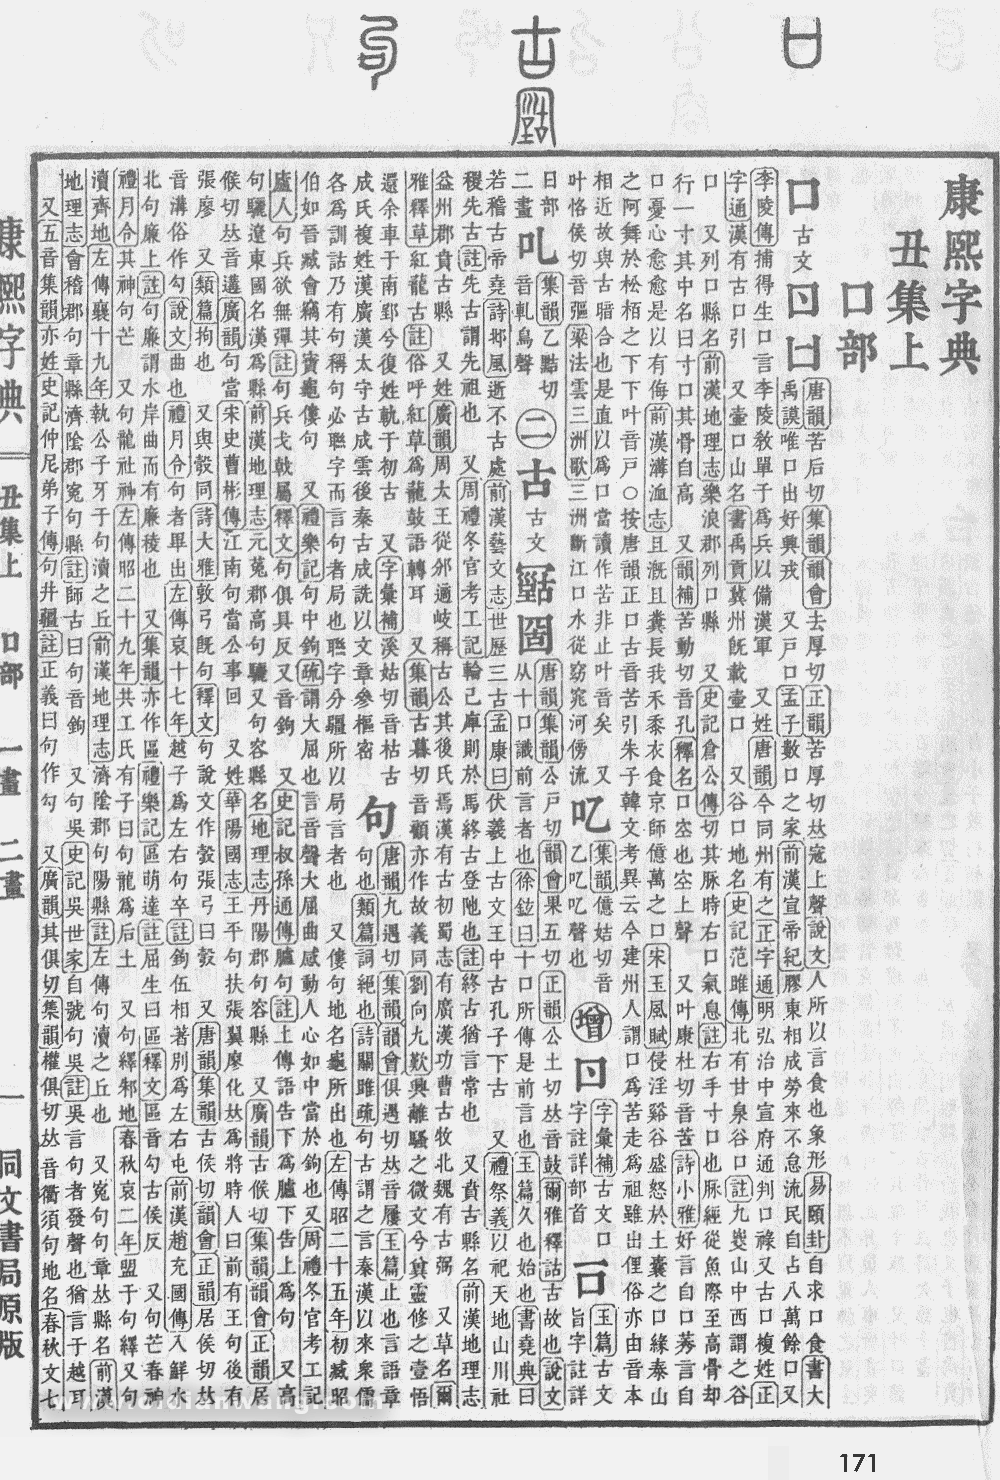 康熙字典
丑集上
口部
口 古文 𠙵 日 唐韻苦后切集韻韻會去厚切正韻苦厚切𠀤寇上聲說文人所以言食也象形易頤卦自求口食書大
禹謨唯口出好興戎 又戸口孟子數口之家前漢宣帝紀膠東相成勞來不怠流民自占八萬餘口 又
李陵傳捕得生口言李陵敎單于爲兵以備漢軍 又姓唐韻今同州有之正字通明弘治中宣府通判口祿又古口複姓正
字通漢有古口引 又壷口山名書禹貢冀州旣載壷口 又谷口地名史記范雎傳北有甘泉谷口註九嵏山中西謂之谷
口 又列口縣名前漢地理志樂浪郡列口縣 又史記倉公傳切其脉時右口氣急註右手寸口也脉經從魚際至高骨却
行一寸其中名曰寸口其骨自高 又韻補苦動切音孔釋名口空也空上聲 又叶康杜切音苦詩小雅好言自口莠言自
口憂心愈愈是以有侮前漢溝洫志且漑且糞長我禾黍衣食京師億萬之口宋玉風賦侵淫谿谷盛怒於土囊之口緣泰山
之阿舞於松栢之下下叶音戸○按唐韻正口古音苦引朱子韓文考異云今建州人謂口爲苦走爲祖雖出俚俗亦由音本
相近故與古暗合也是直以爲口當讀作苦非止叶音矣 又
叶恪侯切音彄梁法雲三洲歌三洲斷江口水從窈窕河傍流
吃 集韻億姞切音
乙吃吃聲也
增 𠙵 字彙補古文口
字註詳部首
一口 玉篇古文
旨字註詳
日部
二畫
吼 集韻乙黠切
音軋鳥聲
二
古 古文 唐韻集韻公戸切韻會果五切正韻公土切𠀤音鼓爾雅釋詁古故也說文
从十口識前言者也徐鉉曰十口所傳是前言也玉篇久也始也書堯典曰
若稽古帝堯詩邶風逝不古處前漢藝文志世歷三古孟康曰伏羲上古文王中古孔子下古 又禮祭義以祀天地山川社
稷先古註先古謂先祖也 又周禮冬官考工記輪已庳則於馬終古登阤也註終古猶言常也 又賁古縣名前漢地理志
益州郡賁古縣 又姓廣韻周太王從邠適岐稱古公其後氏焉漢有古初蜀志有廣漢功曹古牧北魏有古弼 又草名爾
雅釋草紅龍古註俗呼紅草爲龍鼓語轉耳 又集韻古暮切音顧亦作故義同劉向九歎興離騷之微文兮冀靈修之壹悟
還余車于南郢兮復姓軌于初古 又字彙補溪姑切音枯古
成氏複姓漢廣漢太守古成雲後秦古成詵以文章參樞密
句 唐韻九遇切集韻韻會俱遇切𠀤音屨玉篇止也言語章
句也類篇詞絕也詩關雎疏句古謂之言秦漢以來衆儒
各爲訓詁乃有句稱句必聯字而言句者局也聯字分疆所以局言者也 又僂句地名龜所出也左傳昭二十五年初臧昭
伯如晉臧會竊其寶龜僂句 又禮樂記句中鉤疏謂大屈也言音聲大屈曲感動人心如中當於鉤也又周禮冬官考工記
廬人句兵欲無彈註句兵戈戟屬釋文句俱具反又音鉤 又史記叔孫通傳臚句註上傳語告下爲臚下告上爲句 又高
句驪遼東國名漢爲縣前漢地理志元菟郡高句驪又句容縣名地理志丹陽郡句容縣 又廣韻古候切集韻韻會正韻居
候切𠀤音遘廣韻句當宋史曹彬傳江南句當公事回 又姓華陽國志王平句扶張翼廖化𠀤爲將時人曰前有王句後有
張廖 又類篇拘也 又與彀同詩大雅敦弓旣句釋文句說文作彀張弓曰彀 又唐韻集韻古侯切韻會正韻居侯切𠀤
音溝俗作勾說文曲也禮月令句者畢出左傳哀十七年越子爲左右句卒註鉤伍相著別爲左右屯前漢趙充國傳入鮮水
北句廉上註句廉謂水岸曲而有廉稜也 又集韻亦作區禮樂記區萌達註屈生曰區釋文區音勾古侯反 又句芒春神
禮月令其神句芒 又句龍社神左傳昭二十九年共工氏有子曰句龍爲后土 又句繹邾地春秋哀二年盟于句繹又句
瀆齊地左傳襄十九年執公子牙于句瀆之丘前漢地理志濟陰郡句陽縣註左傳句瀆之丘也 又寃句句章𠀤縣名前漢
地理志會稽郡句章縣濟陰郡寃句縣註師古曰句音鉤 又句吳史記吳世家自號句吳註吳言句者發聲也猶言于越耳
又五音集韻亦姓史記仲尼弟子傳句井疆註正義曰句作勾 又廣韻其俱切集韻權俱切𠀤音衢須句地名春秋文七
康熙字典
丑集上 口部 一畫 二畫
一
同文書局原版
171